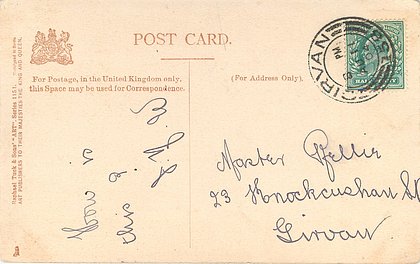 POST CARD.
For Postage, in the United Kingdom only,
this Space may be used for Correspondence.
(For Address Only).
Raphael Tuck & Sons' "ART", Series 1151.
ART PUBLISHERS TO THEIR MAJESTIES THE KING AND QUEEN.
GIRVAN
How is
this
Master
23 Knockcushan St
Girvan